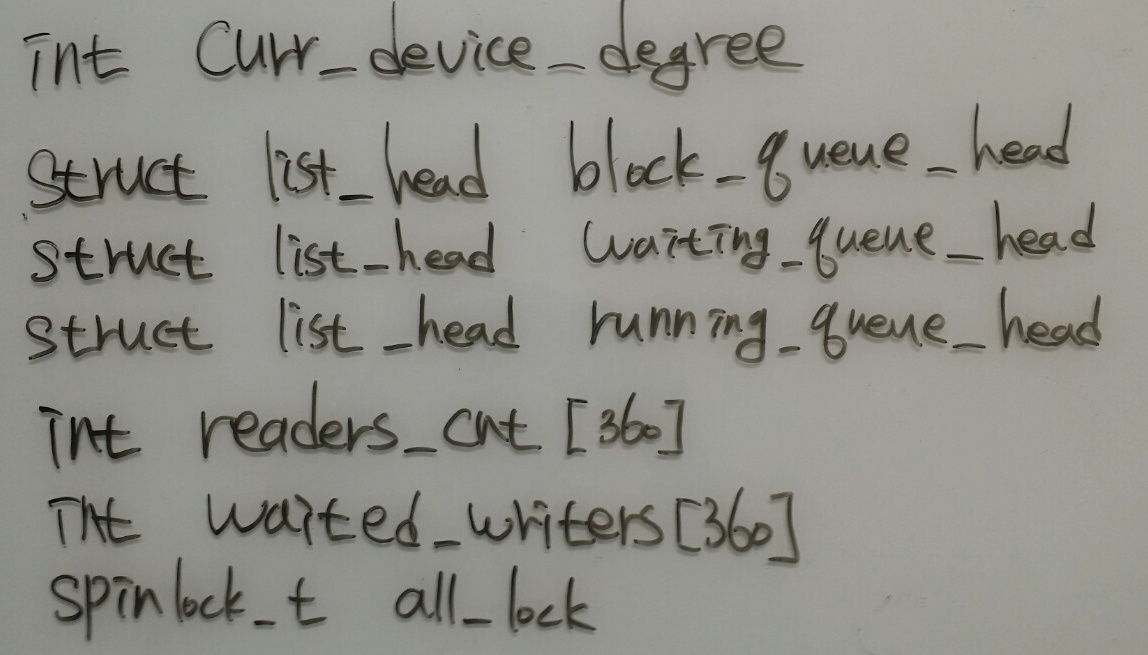 int curr_device_degree
struct list_head block_queue_head
struct list_head waiting_queue_head
struct list_head running_queue_head
int readers_cnt [360]
int waited_writers[360]
spinlock_t all_lock